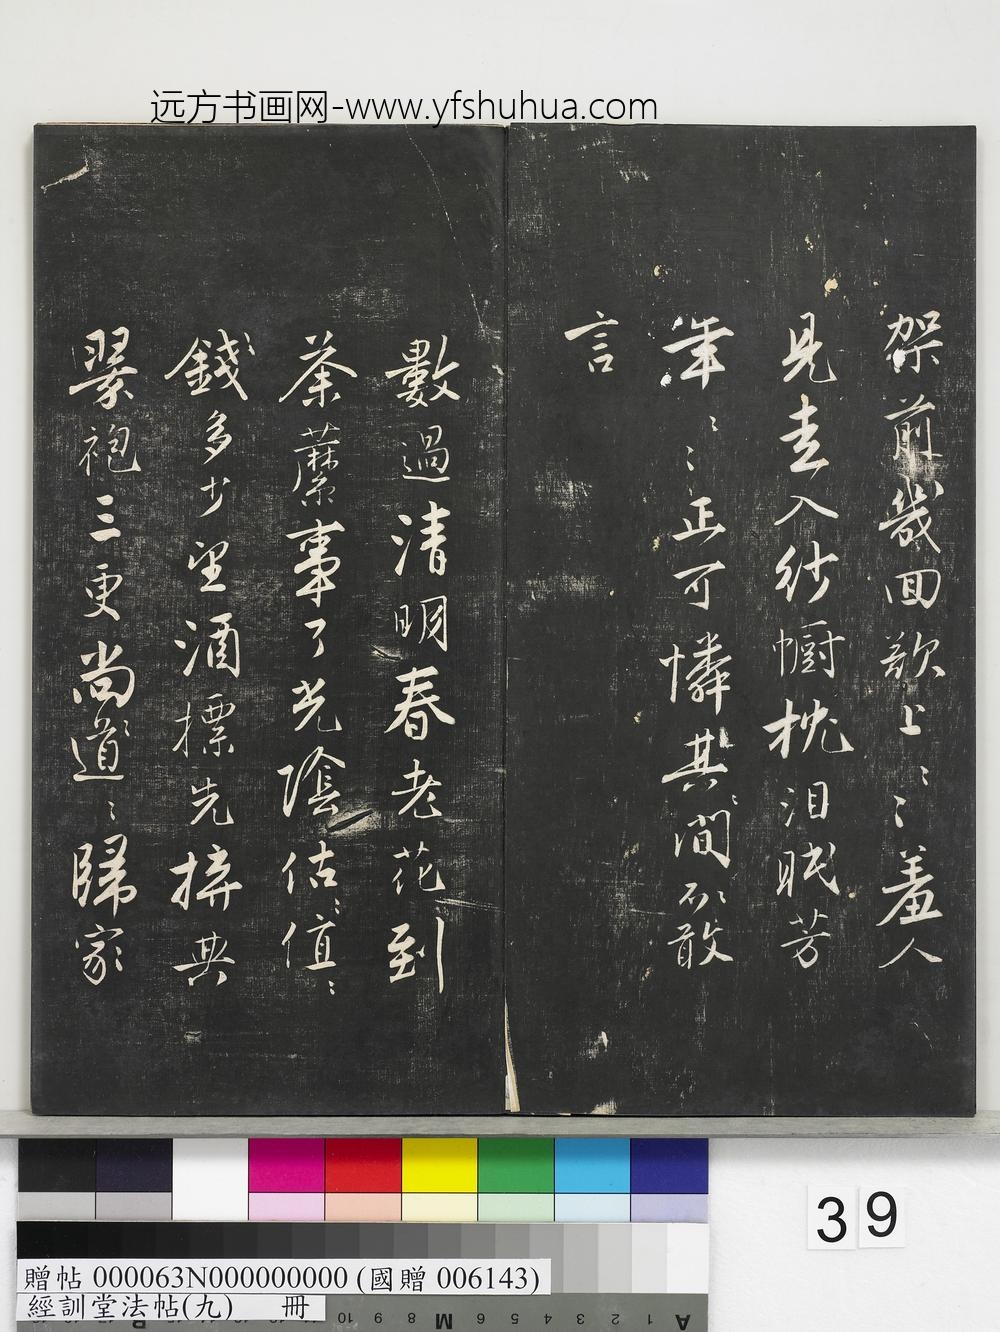 远方书画网-www.yfshuhua.com
架前幾回歌上〻〻羞人
見走入紗幮枕泪眠芳
年〻〻正可憐其間不敢
言
數過清明春老花到
荼蘼事了光陰估〻值〻
錢多少望酒標先拚典
翠袍三更尚道〻歸家
39
贈帖 000063N000000000 (國贈 006143)
經訓堂法帖(九) 冊